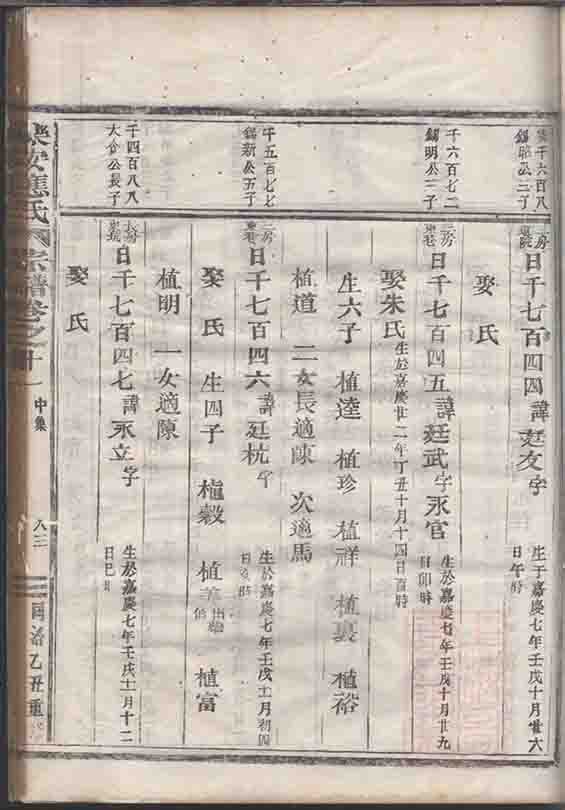 樂千六百八
錫昭公二子
二房
東院
日千七百四四諱廷友字
生于嘉慶七年壬戌十月廿六
日午時
娶氏
千六百七二
錫明公二子
二房
東巷
日千七百四五諱廷武字永官
生於嘉慶七年壬戌十月廿九
日卯時
娶朱氏生於嘉慶廿二年丁丑十月十四日酉時
生六子 植逵 植珍 植祥 植裏 植裕
植道 二女長適陳 次適馬
千五百七七
錫新公五子
二房
東巷
日千七百四六諱廷杭字
生於嘉慶七年壬戌十一月初四
日亥時
娶氏 生四子 植穀 植 植富
植明 一女適陳
千四百八八
大合公長子
日千七百四七諱永立字
生於嘉慶七年壬戌十一月十二
日巳時
娶氏
樂安蔣氏宗譜卷之十一
中集
八三
同治乙丑重